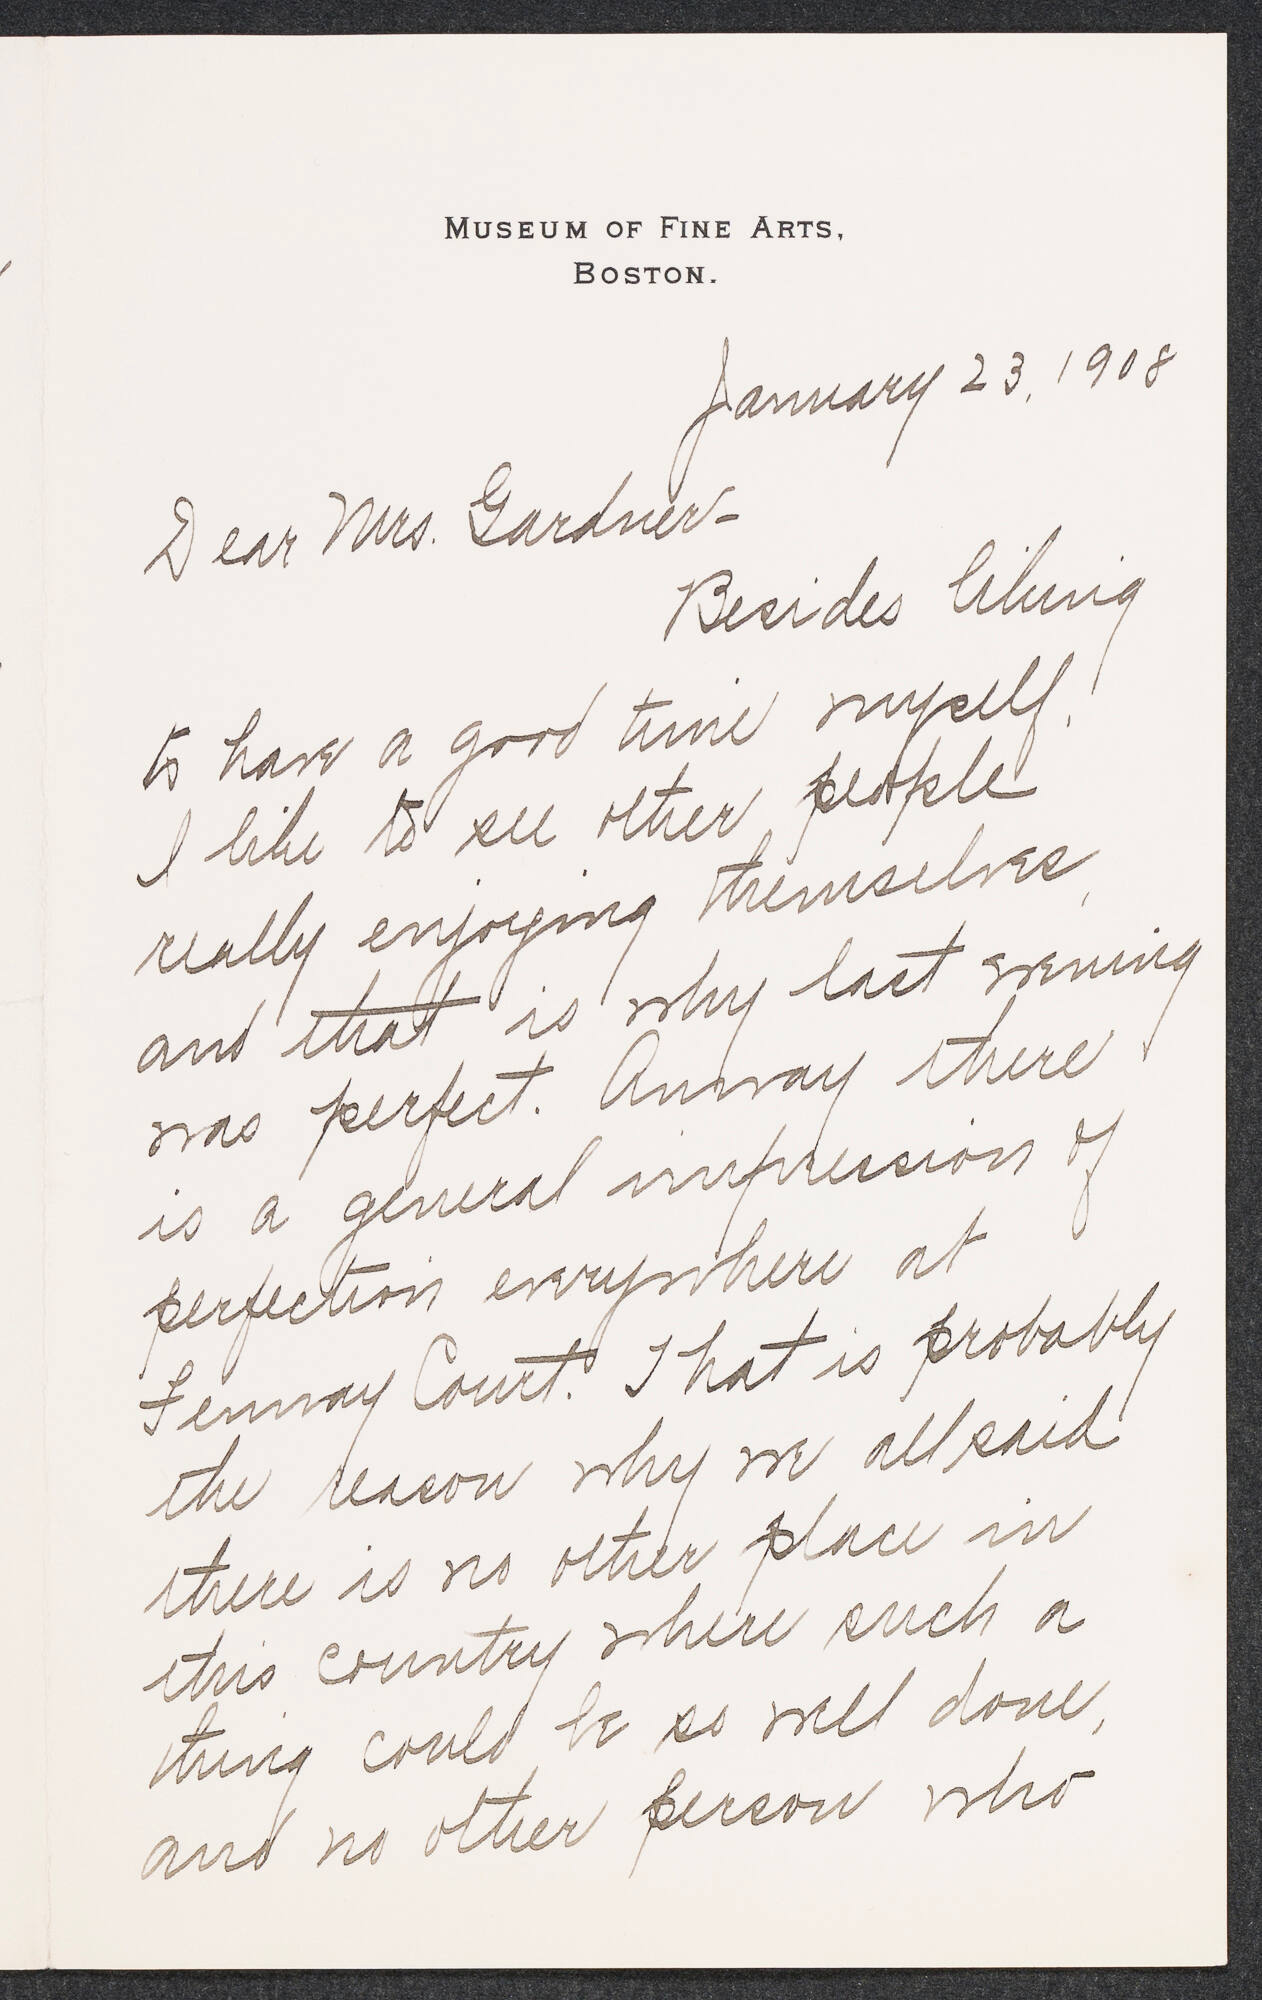 MUSEUM OF FINE ARTS,
BOSTON.
January 23, 1908
Dear Mrs. Gardner-
Besides liking
to have a good time myself,
I like to see other people
really enjoying themselves,
and that is why last evening
was perfect. Anway there
is a general impression of
perfection everywhere at
Fenway Court. That is probably
the reason why we all said
there is no other place in
this country where such a
thing could be so well done,
and no other person who